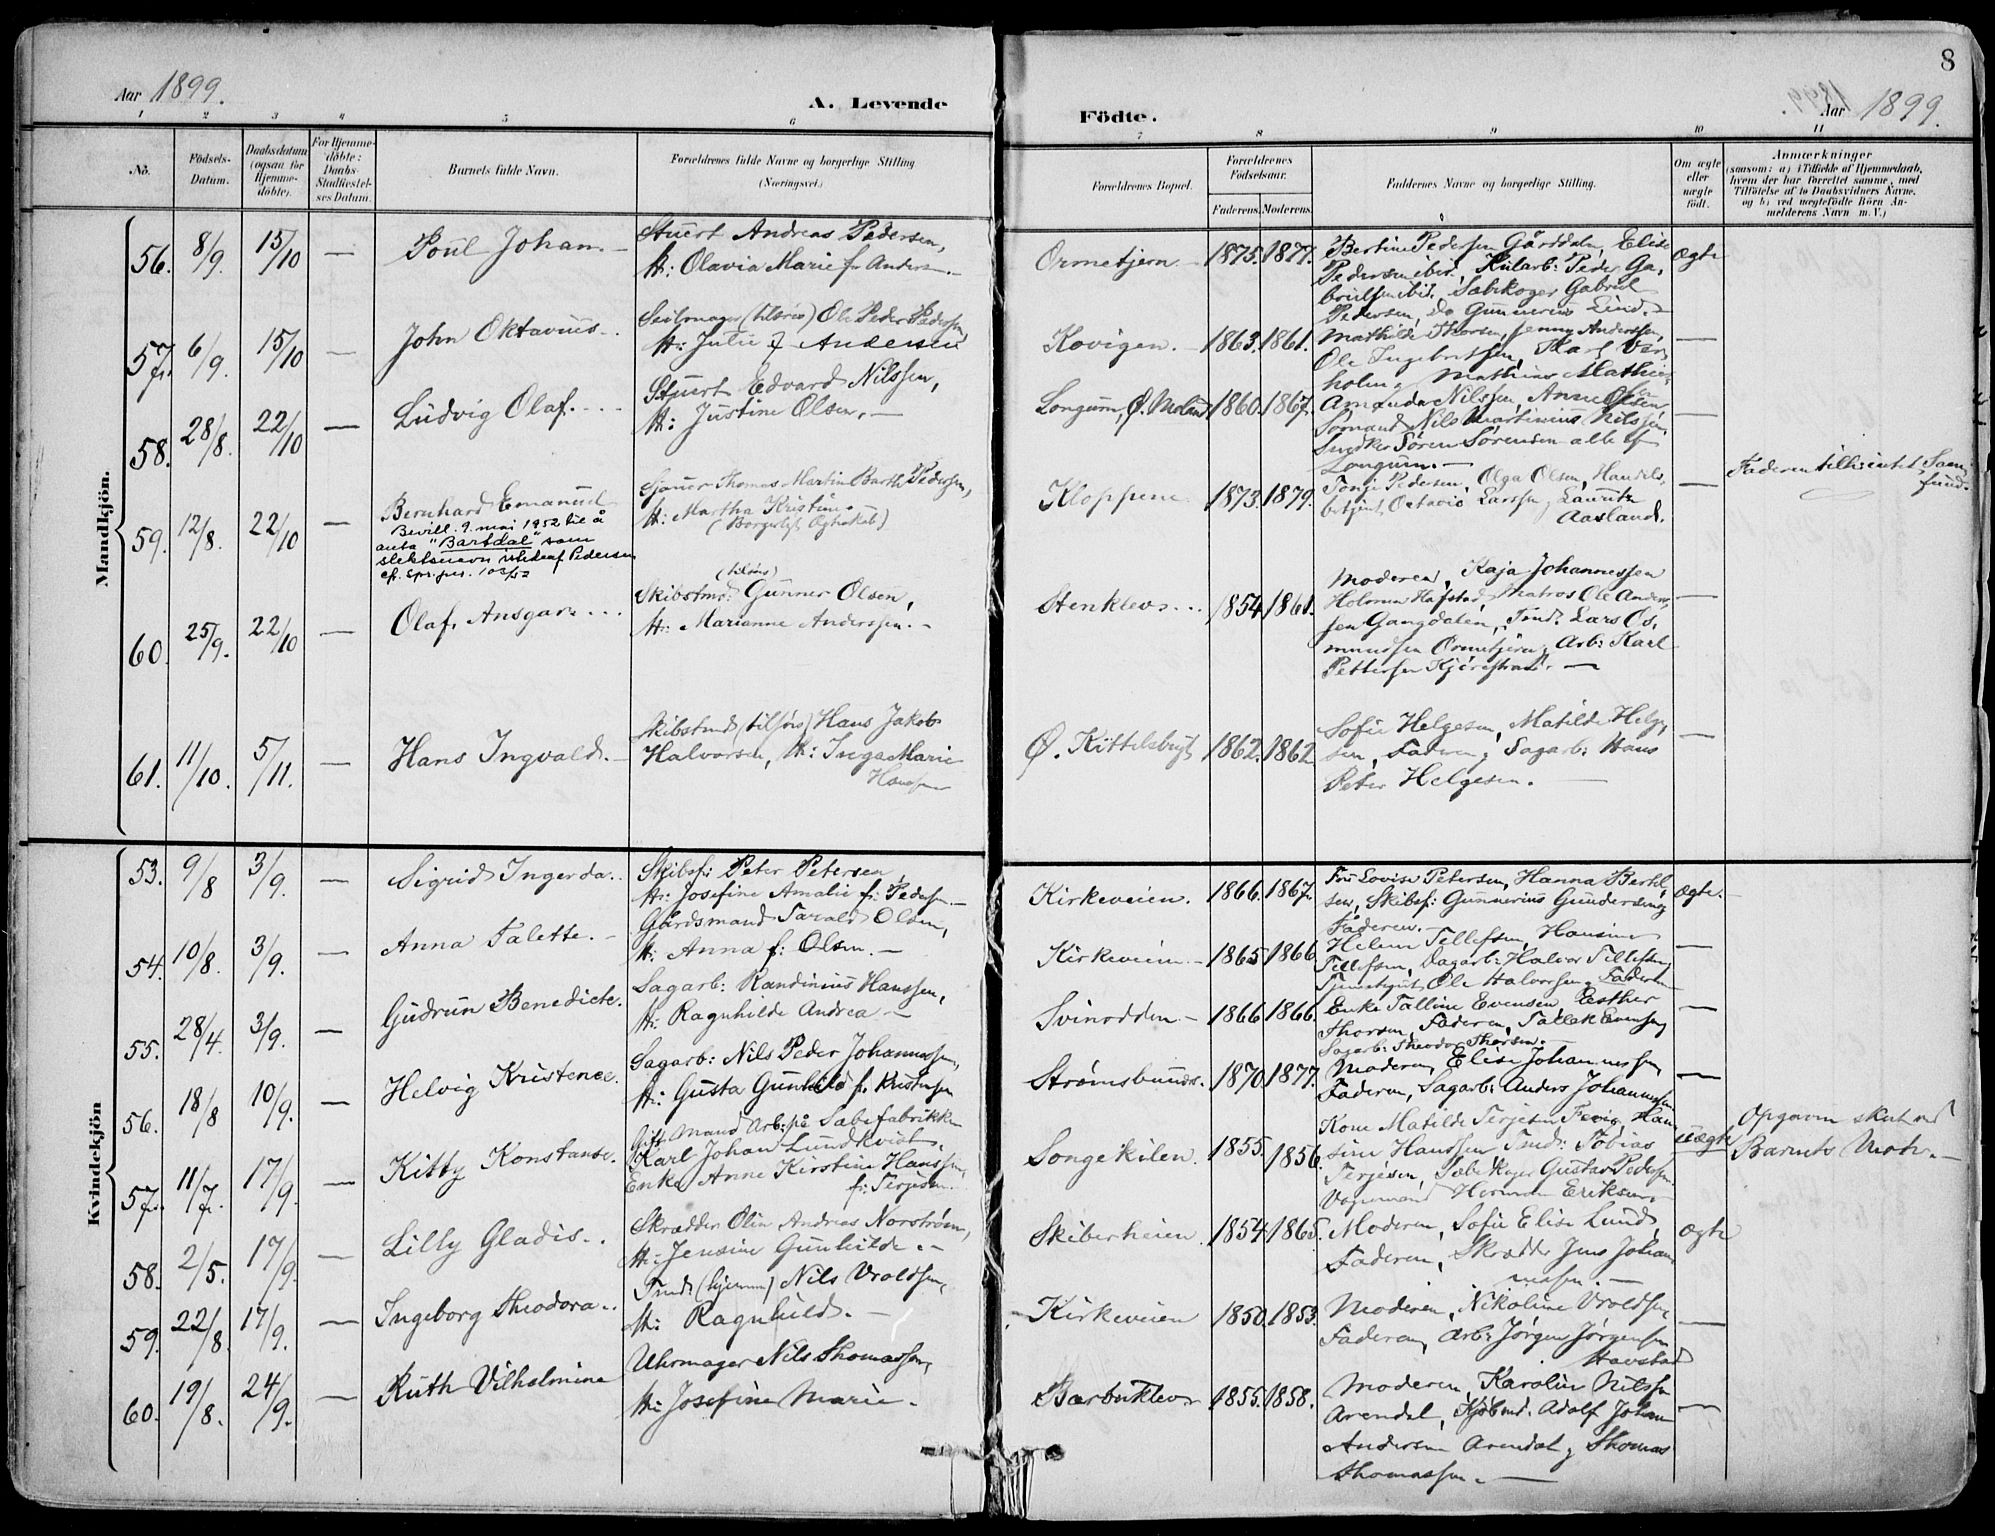 Aar 1899.
A. Levende
Födte.
8
Aar 1899.
1 2 3 4 5 6 7 8 9 10 11
No.
Födsels-
Datum.
Daabsdatum
(ogsaa for
Hjemme-
döbte).
For Hjemme-
döbte:
Daabs-
Stadfæstel-
ses Datum.
Barnets fulde Navn.
Forældrenes fulde Navne og borgerlige Stilling
(Næringsvei.)
Forældrenes Bopæl.
Forældrenes
Födselsaar.
Faderens. Moderens.
Faddernes Navne og borgerlige Stilling.
Om ægte
eller
uægte
födt.
Anmærkninger
(saasom: a) i Tilfælde af Hjemmedaab,
hvem der har forrettet samme, med
Tilföielse af to Daabsvidners Navne,
og b) ved uægtefödte Börn An-
melderens Navn m. V.)
Mandkjön.
56. 8/9. 15/10 — Poul Johan. —
Stuert Andreas Pedersen,
H: Olavia Marie f. Anders —
Ormetjern — 1875. 1877.
Bertine Pedersen Gårddalen, Elise
Pedersen ibid, Kularb: Peder Ga-
brielsen ibid, Sæbekoger Gabriel
Pedersen, Do Gunnerius Lind. —
Ægte
57. 6/9. 15/10 — John Oktavius.
Seilmager (tilsøes) Ole Peder Pedersen
H: Julie f. Andersen
Kovigen. — 1863. 1861.
Mathilde Thorsen, Jenny Anderssen,
Ole Ingebretsen, Karl Ver-
holm, Mathias Mathie
—
58. 28/8. 22/10 — Ludvig Olaf. --
Stuert Edvard Nilssen,
H: Justine Olsen. —
Longum, Ø. Moland 1860. 1867.
Amanda Nilssen, Anne Olsen
Sømand Nils Martinius Nilssen
Snedker Søren Sørensen alle af
Longum. —
—
59. 12/8. 22/10 — Bernhard Emanuel
Bevill. 9. mai 1952 til å
anta "Bartdal" som
slektsnavn istedenf. Pedersen
cf. spr. per. 103/52
Sjauer Thomas Martin Barth Pedersen,
H: Martha Kristine.
(Borgerligt Ægteskab)
Kloppene 1873. 1879.
Tonje Pedersen, Olga Olsen, Handels-
betjent Octavio Larssen, Lauritz
Aasland.
—
Faderen tilh: intet Sam
fund.
60. 25/9. 22/10 — Olaf Ansgar. ...
(tilsøes)
Skibstmd: Gunner Olsen,
H: Marianne Anderssen. —
Stenklev. .. 1854. 1861.
Moderen, Kaja Johannessen
Holmen Hafstad, Matros Ole Anders-
sen Gangdalen, Tmd. Lars Os-
mundsen Ormetjern, Arb: Karl
Pettersen Kjærstrand. —
—
61. 11/10. 5/11. — Hans Ingvald. —
Skibstmd (tilsøes) Hans Jakob
Halvorsen, H: Inga Marie
Hanssen
Ø. Kittelsbugt 1862. 1862
Sofie Helgesen, Matilde Helge-
sen, Faderen, Sagarb: Hans
Peter Helgesen. —
—
Kvindekjön
53. 9/8 3/9. — Sigrid Ingerda.
Skibsf: Peter Petersen
H: Josefine Amalie f: Peders. —
Kirkeveien. 1866. 1867.
Fru Lovise Petersen, Hanna Bertel-
sen, Skibsf: Gunnerius Gundersen
Faderen. —
Ægte. —
54. 10/8. 3/9. — Anna Talette. —
Gårdsmand Tarald Olsen,
H: Anna f: Olsen. —
Kirkeveien — 1865 1866
Helene Tellefsen, Hansine
Tellefsen, Dagarb: Halvor Tellefsen,
Tjenestegut Ole Halvorsen, Faderen
—
55. 28/4. 3/9. — Gudrun Benedicte.
Sagarb: Randinius Hanssen,
H: Ragnhilde Andrea —
Svinodden — 1866 1866.
Enke Talline Evensen, Esther
Thorsen, Faderen, Tallak Evensen,
Sagarb: Theodor Thorsen. —
—
56. 18/8 10/9. — Helvig Kristence.
Sagarb: Nils Peder Johannessen,
H: Gusta Gunhild f. Kristensen
Strømsbunds. 1870. 1877.
Moderen, Elise Johannessen,
Faderen, Sagarb: Anders Johannessen
—
57. 11/7. 17/9. — Kitty Konstanse.
Gift Mand Arb: på Sæbefabrikken
Karl Johan Lundkvist,
Enke Anne Kirstine Hanssen,
f: Terjesen.
Songekilen. 1855. 1856.
Kone Matilde Terjesen Fevig, Han-
sine Hanssen, Tmd: Tobias
Terjesen, Sæbekoger Gustav Pedersen
Vognmand Herman Eriksen.
Uægte
Opgaven skutved
Barnets Moder. —
58. 2/5. 17/9. — Lilly Gladis. .
Skrædder Olin Andreas Norstrøm,
H: Jensine Gunhilde. —
Skiberheien. 1854. 1865.
Moderen, Sofie Elise Lund,
Faderen, Skrædder Jens Johan-
nessen. —
Ægte
59. 22/8. 17/9. — Ingeborg Theodora. .
Tmd: (hjemme) Nils Vroldsen,
H: Ragnhild. —
Kirkeveien 1850. 1853.
Moderen, Nikoline Vroldsen,
Faderen, Arb: Jørgen Jørgensen
Havstad
—
60. 19/8. 24/9. — Ruth Vilhelmine
Uhrmager Nils Thomassen,
H: Josefine Marie.
Barbuklev. 1855. 1858.
Moderen, Karoline Nilsen
Arendal, Kjøbmd. Adolf Johan
Andersen Arendal, Thomas
Thomassen. —
—